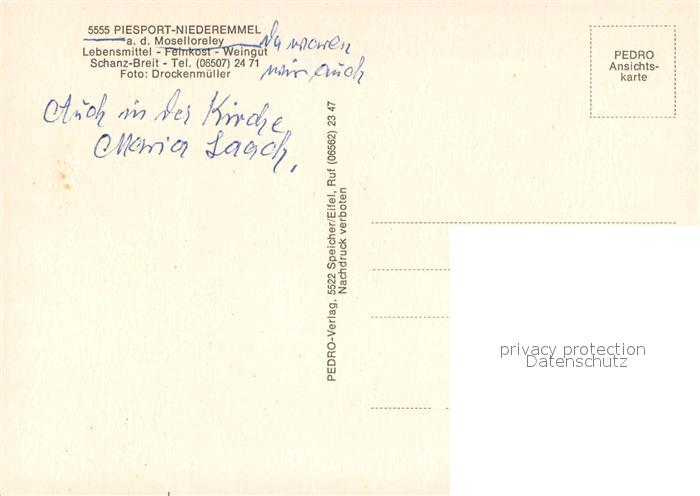 5555 PIESPORT-NIEDEREMMEL
a. d. Moselloreley
Lebensmittel - Feinkost - Weingut
Schanz-Breit - Tel. (06507) 24 71
Foto: Drockenmüller
Da waren
wir auch
Auch in der Kirche
Maria Laach,
PEDRO-Verlag, 5522 Speicher/Eifel, Ruf (06562) 23 47
Nachdruck verboten
PEDRO
Ansichts-
karte
privacy protection
Datenschutz